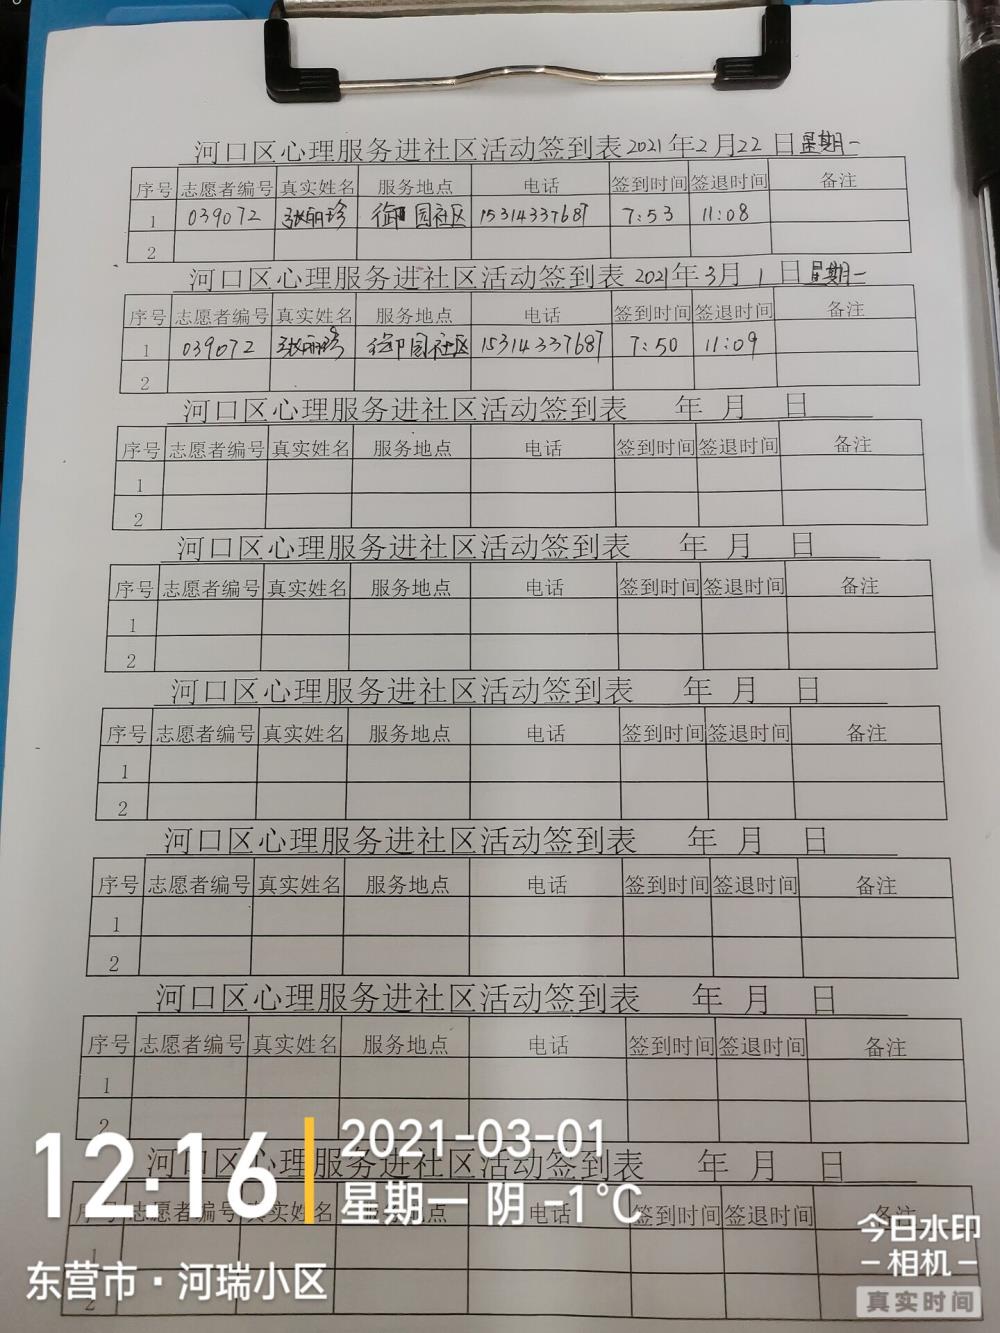 河口区心理服务进社区活动签到表2021年2月22日星期一
序号 志愿者编号 真实姓名 服务地点 电话 签到时间 签退时间 备注
1 039072 张丽珍 御园社区 15314337687 7:53 11:08
2
河口区心理服务进社区活动签到表 2021年3月1日星期一
序号 志愿者编号 真实姓名 服务地点 电话 签到时间 签退时间 备注
1 039072 张丽珍 御园社区 15314337687 7:50 11:09
2
河口区心理服务进社区活动签到表 年 月 日
序号 志愿者编号 真实姓名 服务地点 电话 签到时间 签退时间 备注
1
2
河口区心理服务进社区活动签到表 年 月 日
序号 志愿者编号 真实姓名 服务地点 电话 签到时间 签退时间 备注
1
2
河口区心理服务进社区活动签到表 年 月 日
序号 志愿者编号 真实姓名 服务地点 电话 签到时间 签退时间 备注
1
2
河口区心理服务进社区活动签到表 年 月 日
序号 志愿者编号 真实姓名 服务地点 电话 签到时间 签退时间 备注
1
2
河口区心理服务进社区活动签到表 年 月 日
序号 志愿者编号 真实姓名 服务地点 电话 签到时间 签退时间 备注
1
2
河口区心理服务进社区活动签到表 年 月 日
序号 志愿者编号 真实姓名 服务地点 电话 签到时间 签退时间 备注
1
2
12:16
2021-03-01
星期一 阴 -1°C
东营市·河瑞小区
今日水印
-相机-
真实时间